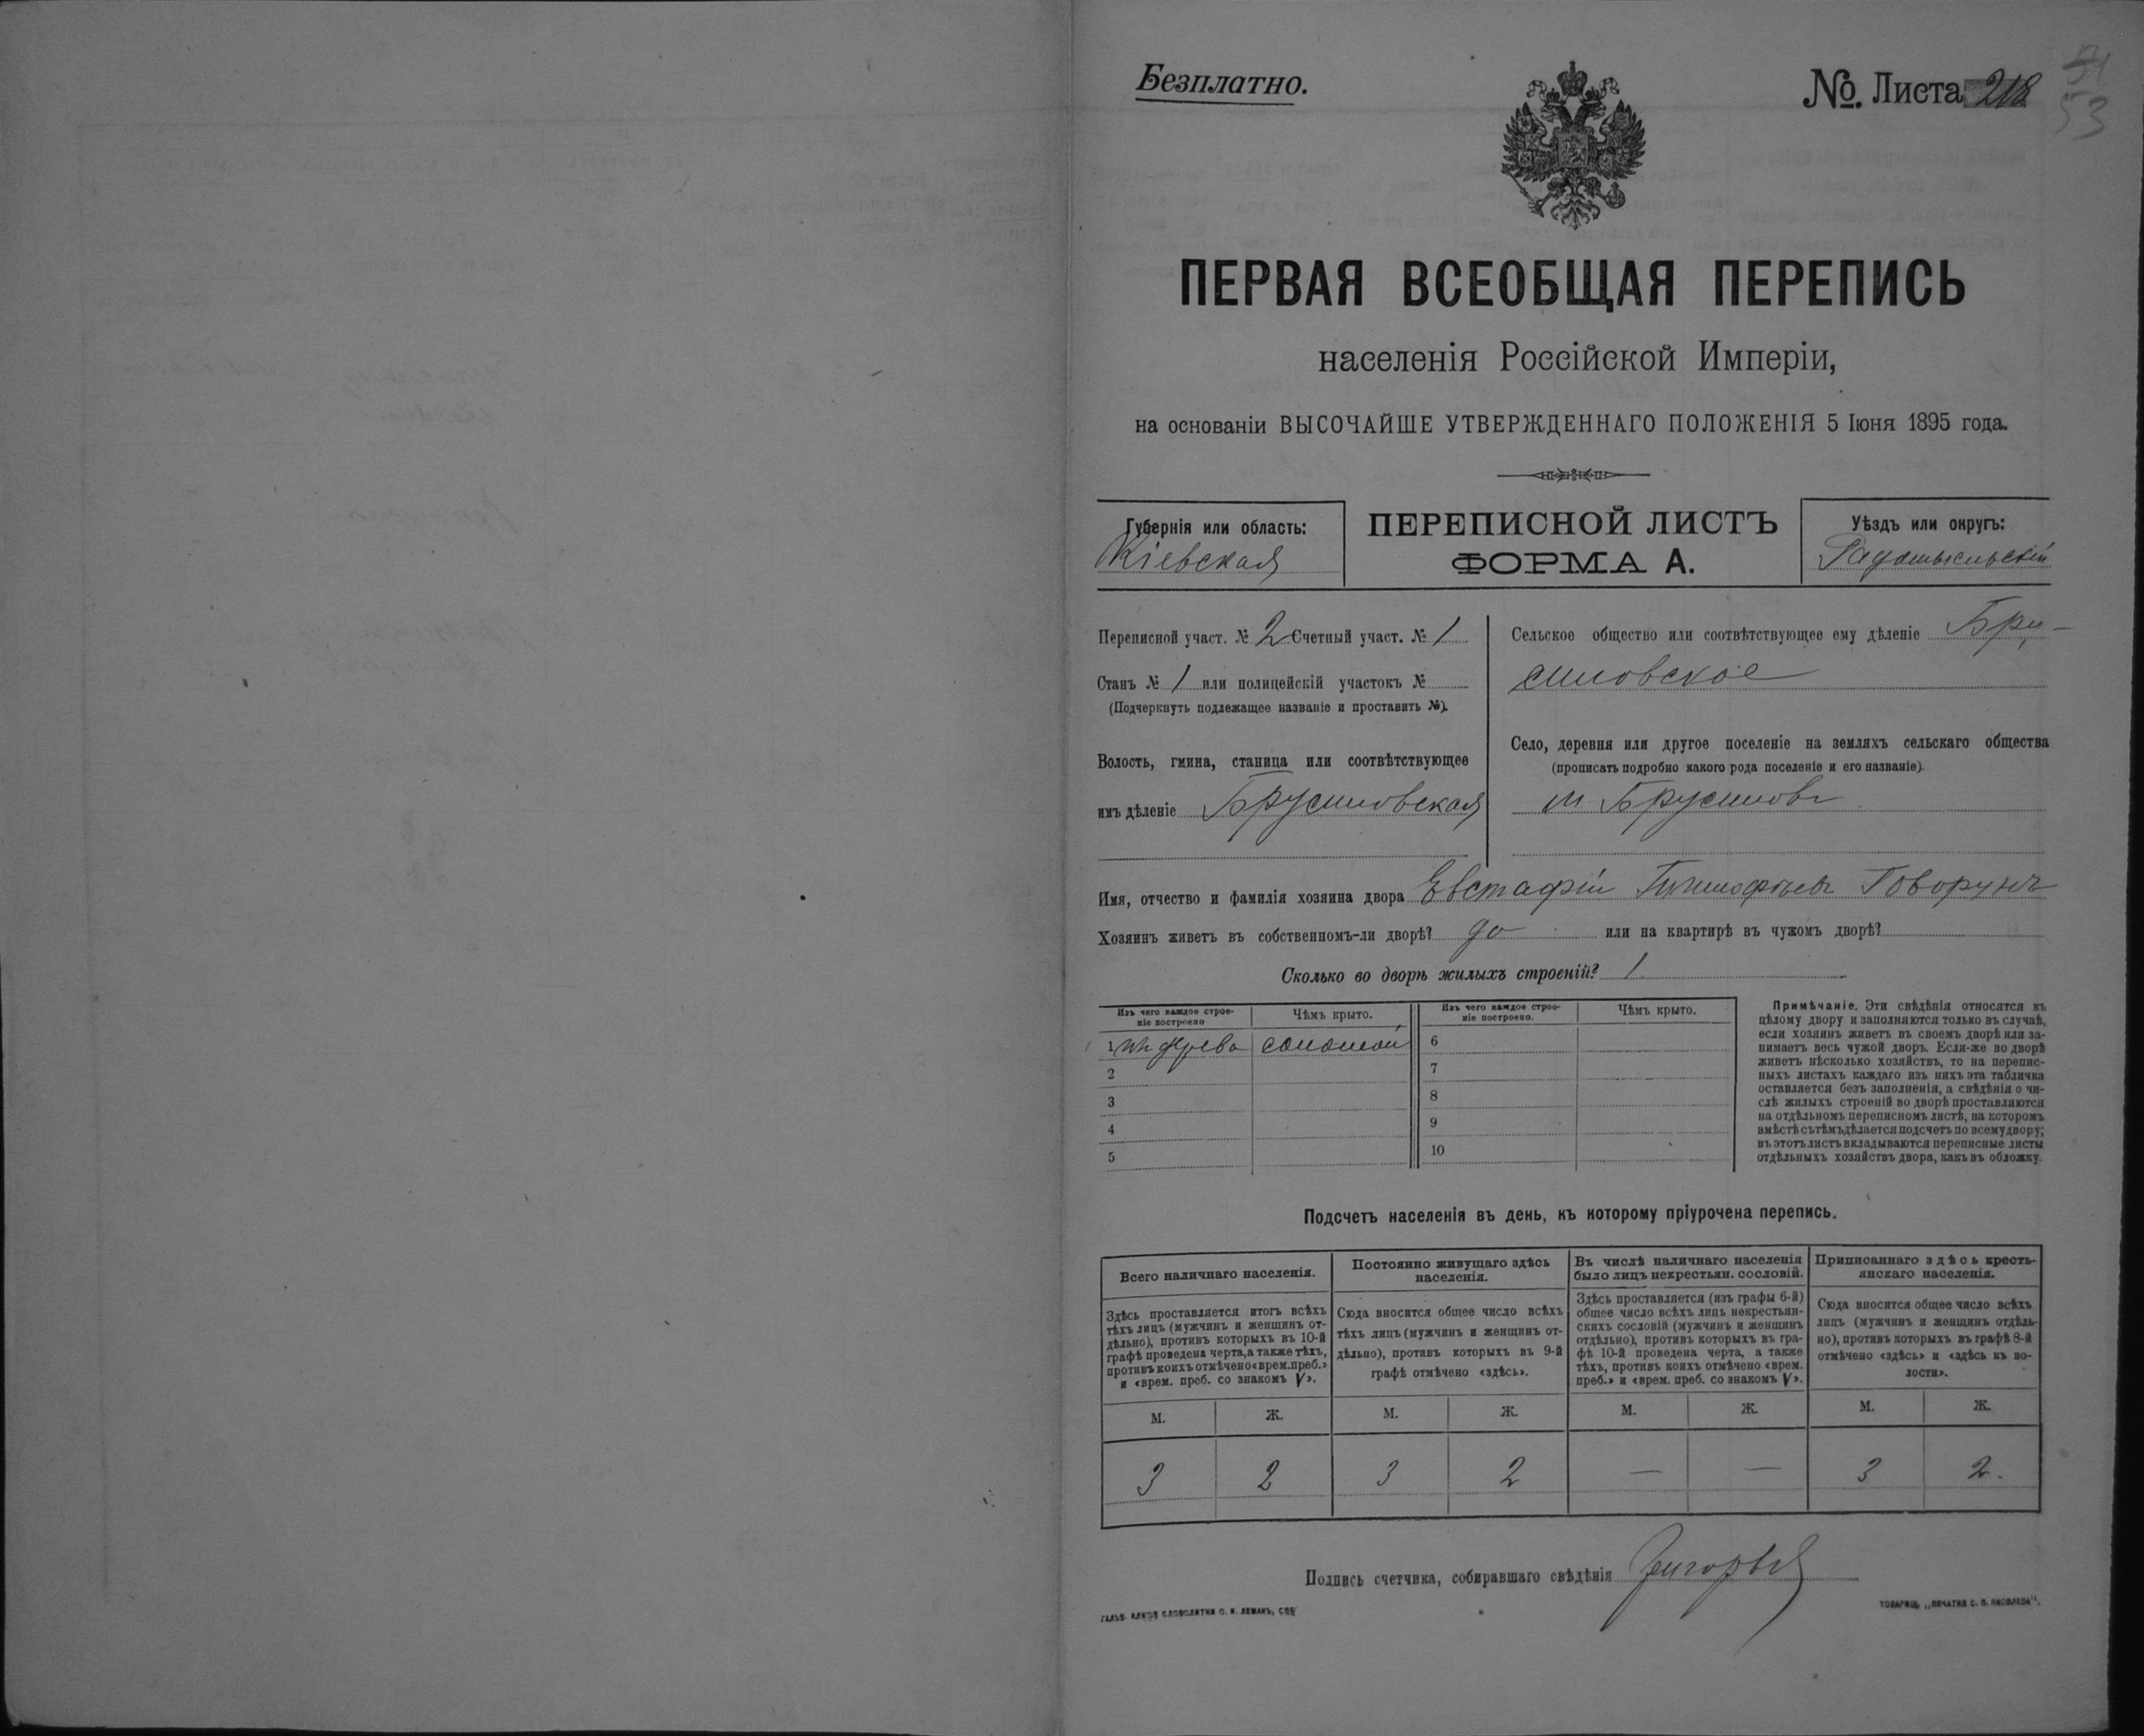 Безплатно.
№. Листа 218
53
ПЕРВАЯ ВСЕОБЩАЯ ПЕРЕПИСЬ
населенія Россійской Имперіи,
на основаніи ВЫСОЧАЙШЕ УТВЕРЖДЕННАГО ПОЛОЖЕНІЯ 5 Іюня 1895 года.
Губернія или область:
Кіевская
ПЕРЕПИСНОЙ ЛИСТЪ
ФОРМА А.
Уѣздъ или округъ:
Радомысльскій
Переписной участ. № 2 Счетный участ. № 1
Станъ № 1 или полицейскій участокъ №
(Подчеркнуть подлежащее названіе и проставить №).
Волость, гмина, станица или соотвѣтствующее
имъ дѣленіе Брусиловская
Сельское общество или соотвѣтствующее ему дѣленіе Бру-
силовское
Село, деревня или другое поселеніе на земляхъ сельскаго общества
(прописать подробно какого рода поселеніе и его названіе).
м Брусиловъ
Имя, отчество и фамилія хозяина двора Евстафій Тимофѣевъ Говорунъ
Хозяинъ живетъ въ собственномъ-ли дворѣ? да или на квартирѣ въ чужомъ дворѣ?
Сколько во дворѣ жилыхъ строеній? 1
Изъ чего каждое строе-
ніе построено
Чѣмъ крыто.
1 изъ дерева соломой
2
3
4
5
Изъ чего каждое строе-
ніе построено.
Чѣмъ крыто.
6
7
8
9
10
Примѣчаніе. Эти свѣдѣнія относятся къ
цѣлому двору и заполняются только въ случаѣ,
если хозяинъ живетъ въ своемъ дворѣ или за-
нимаетъ весь чужой дворъ. Если-же во дворѣ
живетъ нѣсколько хозяйствъ, то на перепис-
ныхъ листахъ каждаго изъ нихъ эта табличка
оставляется безъ заполненія, а свѣдѣнія о чи-
слѣ жилыхъ строеній во дворѣ проставляются
на отдѣльномъ переписномъ листѣ, на которомъ
вмѣстѣ съ тѣмъ дѣлается подсчетъ по всему двору;
въ этотъ листъ вкладываются переписные листы
отдѣльныхъ хозяйствъ двора, какъ въ обложку.
Подсчетъ населенія въ день, къ которому пріурочена перепись.
Всего наличнаго населенія.
Здѣсь проставляется итогъ всѣхъ
тѣхъ лицъ (мужчинъ и женщинъ от-
дѣльно), противъ которыхъ въ 10-й
графѣ проведена черта, а также тѣхъ,
противъ коихъ отмѣчено «врем. преб.»
и «врем. преб. со знакомъ V».
Постоянно живущаго здѣсь
населенія.
Сюда вносится общее число всѣхъ
тѣхъ лицъ (мужчинъ и женщинъ от-
дѣльно), противъ которыхъ въ 9-й
графѣ отмѣчено «здѣсь».
Въ числѣ наличнаго населенія
было лицъ некрестьян. сословій.
Здѣсь проставляется (изъ графы 6-й)
общее число всѣхъ лицъ некрестьян-
скихъ сословій (мужчинъ и женщинъ
отдѣльно), противъ которыхъ въ гра-
фѣ 10-й проведена черта, а также
тѣхъ, противъ коихъ отмѣчено «врем.
преб.» и «врем. преб. со знакомъ V».
Приписаннаго здѣсь кресть-
янскаго населенія.
Сюда вносится общее число всѣхъ
лицъ (мужчинъ и женщинъ отдѣль-
но), противъ которыхъ въ графѣ 8-й
отмѣчено «здѣсь» и «здѣсь къ во-
лости».
М. Ж. М. Ж. М. Ж. М. Ж.
3 2 3 2 — — 3 2.
Подпись счетчика, собиравшаго свѣдѣнія
ТОВАРИЩ. „ПЕЧАТНЯ С. П. ЯКОВЛЕВА“.